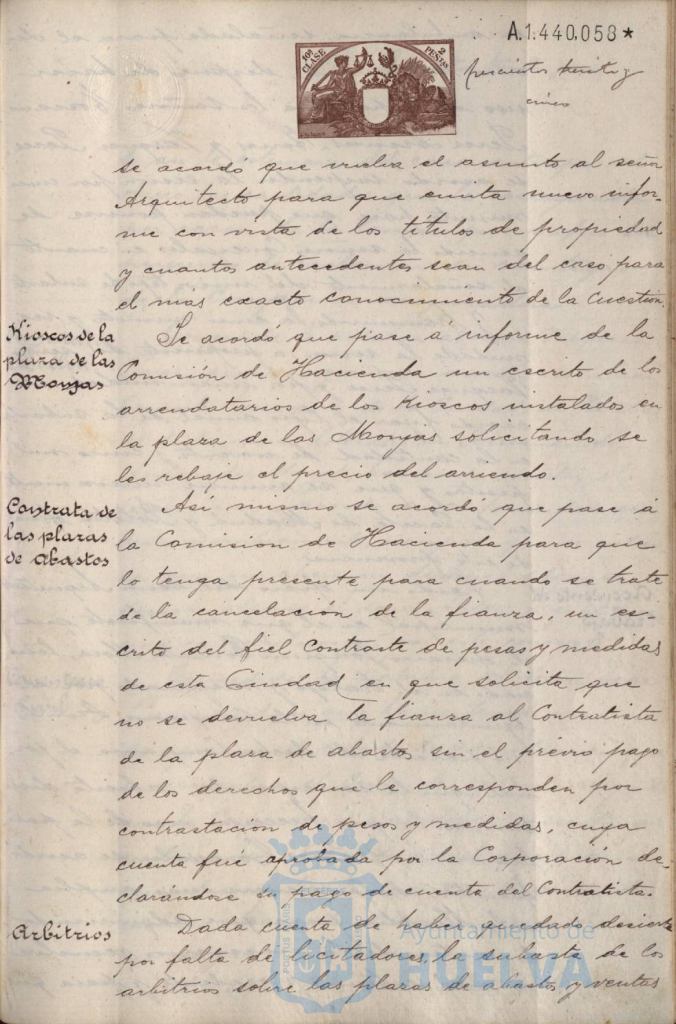 A.1.440,058*
10ª CLASE
2 PESETAS
y
cinco
se acordó que vuelva el asunto al señor
Arquitecto para que emita nuevo infor-
me con vista de los títulos de propiedad
y cuantos antecedentes sean del caso para
el mas exacto conocimiento de la cuestión.
Kioscos de la
plaza de las
Monjas
Se acordó que pase á informe de la
Comisión de Hacienda un escrito de los
arrendatarios de los Kioscos instalados en
la plaza de las Monjas solicitando se
les rebaje el precio del arriendo.
Contrata de
las plazas
de abastos
Así mismo se acordó que pase á
la Comision de Hacienda para que
lo tenga presente para cuando se trate
de la cancelación de la fianza, un es-
crito del fiel Contraste de pesas y medidas
de esta Ciudad en que solicita que
no se devuelva la fianza al Contratista
de la plaza de abastos sin el prévio pago
de los derechos que le corresponden por
contrastación de pesos y medidas, cuya
cuenta fué aprobada por la Corporación de-
clarándose su pago de cuenta del Contratista.
Arbitrios
Dada cuenta de haber quedado desierta
por falta de licitadores, la subasta de los
arbitrios sobre las plazas de abastos y ventas
Ayuntamiento de
HUELVA